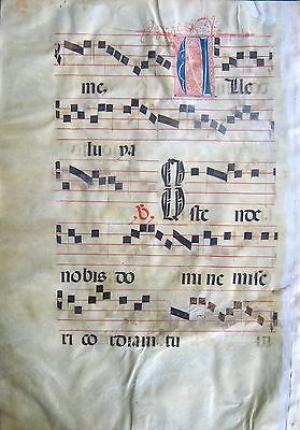 me. A lle
lu ya
℣. Oste nde
nobis do mi ne mise
ri co rdiam tu